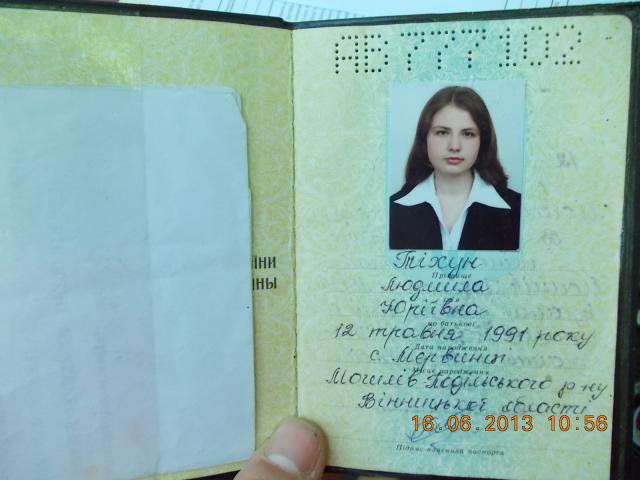 АВ777102
ЇНИ
ИНЫ
Тіхун
Прізвище
Людмила
Юріївна
по батькові
12 травня 1991 року
Дата народження
с.
Місце народження
Могилів-Подільського р-ну
Вінницької області
16.06.2013 10:56
Підпис власника паспорта